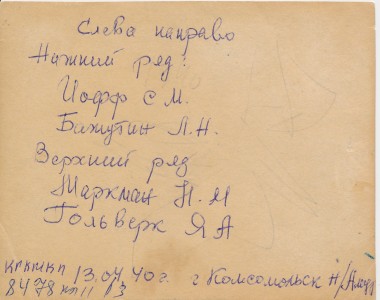 Слева направо
Нижний ряд:
Иофф С М.
Бажутин Л.Н.
Верхний ряд
Маркман Н. М
Гольверк Я А
КРКМКП 13.04 40 г. г Комсомольск Н/Амур
8478